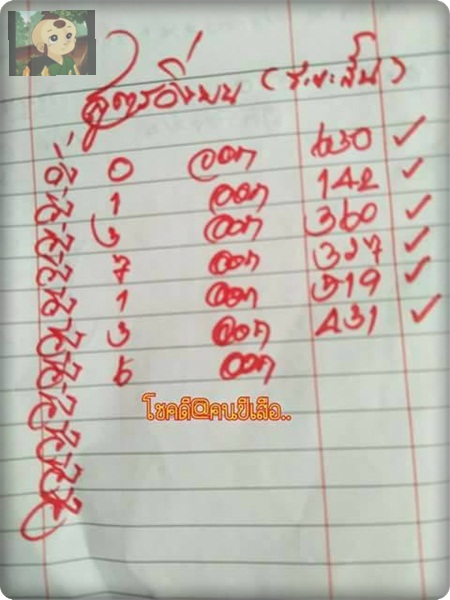 สูตรวิ่งบน (ระยะสั้น)
0 ออก 630 ✓
1 ออก 142 ✓
3 ออก 360 ✓
7 ออก 327 ✓
1 ออก 319 ✓
3 ออก 431 ✓
6 ออก
โชคดี@ฅนปีเสือ..